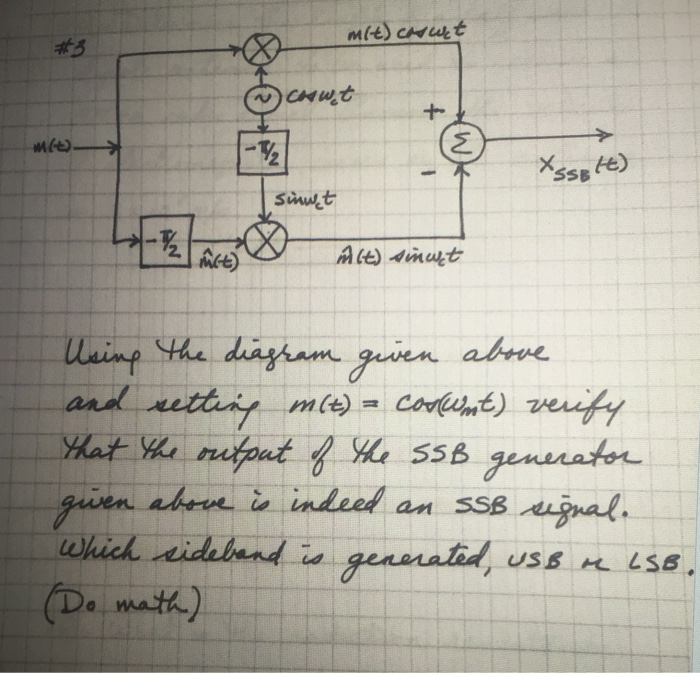 #3
m(t) cosω_ct
cosω_ct
+
m(t)
-π/2
Σ
-
X_SSB(t)
sinω_ct
-π/2
m̂(t)
m̂(t) sinω_ct
Using the diagram given above
and setting m(t) = cos(ω_mt) verify
that the output of the SSB generator
given above is indeed an SSB signal.
Which sideband is generated, USB or LSB.
(Do math)